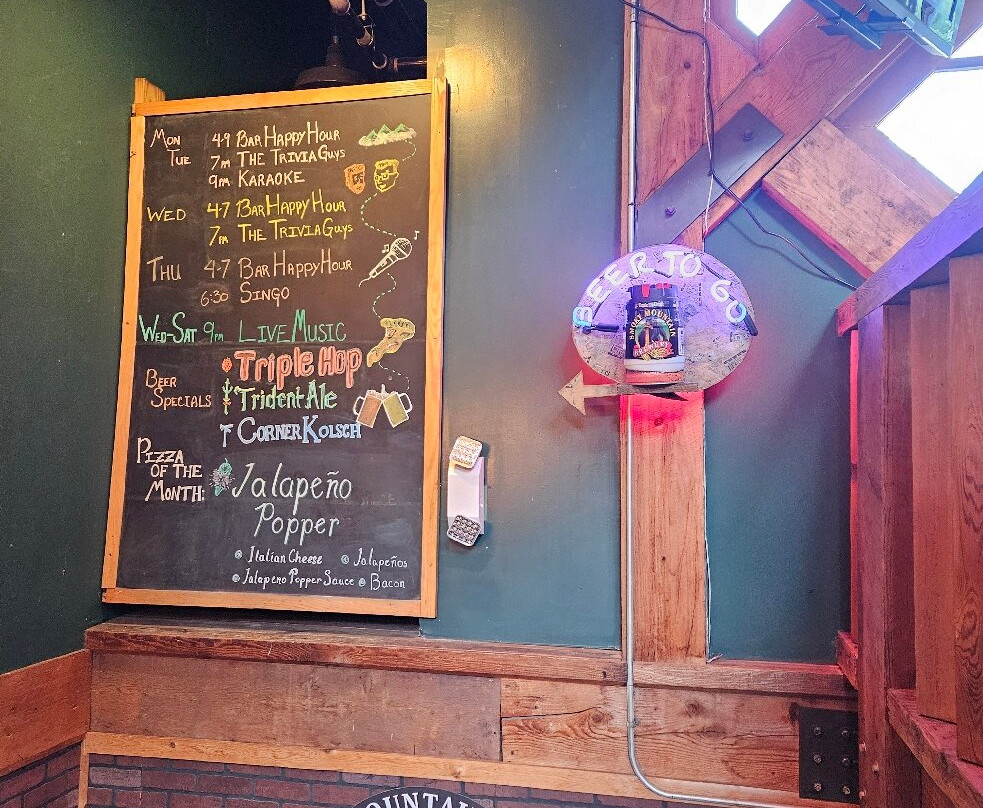 Mon 4-9 Bar Happy Hour
Tue 7pm The Trivia Guys
9pm Karaoke
Wed 4-7 Bar Happy Hour
7pm The Trivia Guys
Thu 4-7 Bar Happy Hour
6:30 Singo
Wed-Sat 9pm Live Music
Beer Specials
Triple Hop
Trident Ale
Corner Kolsch
Pizza of the Month:
Jalapeño
Popper
Italian Cheese
Jalapeños
Jalapeno Popper Sauce
Bacon
BEER TO GO
SMOKY MOUNTAIN
BREWERY